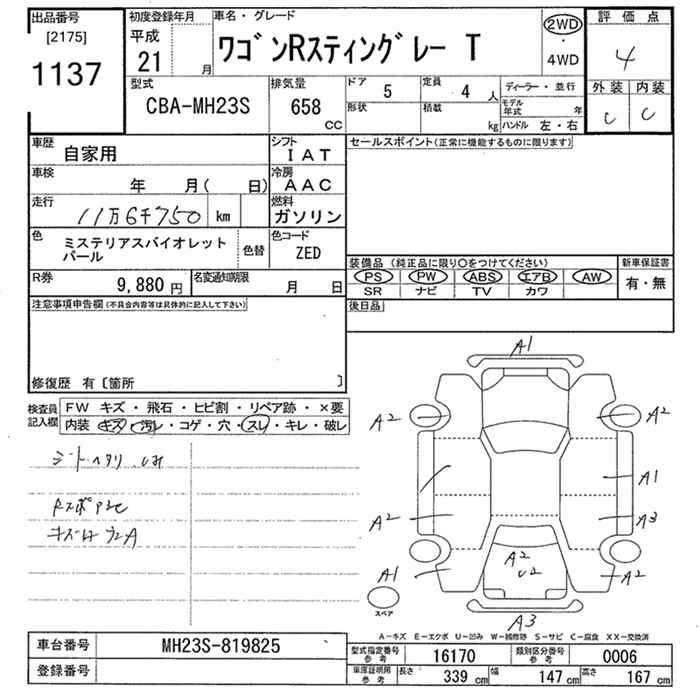 出品番号 初度登録年月 車名・グレード 評価点
[2175] 平成 ワゴンRスティングレー T 2WD
1137 21 月 ・4WD 4
型式 排気量 ドア 5 定員 4人 ディーラー・並行 外装 内装
CBA-MH23S 658 CC 形状 積載 kg モデル年式 年 C C
ハンドル 左・右
車歴 自家用 シフト IAT セールスポイント(正常に機能するものに限ります)
車検 年 月( 日) 冷房 AAC
走行 11万6千750 km 燃料 ガソリン
色 ミステリアスバイオレットパール 色替 色コード ZED
装備品 (純正品に限り○をつけてください) 新車保証書
PS PW ABS エアB AW 有・無
SR ナビ TV カワ
R券 9,880 円 名変通知期限 月 日
後日品
注意事項申告欄(不具合内容等は具体的に記入して下さい)
修復歴 有〔箇所 〕
検査員記入欄 FW キズ・飛石・ヒビ割・リペア跡・×要
内装 キズ・汚レ・コゲ・穴・スレ・キレ・破レ
シートヘタリ
Rスポ
A1
A2 A2
A1
A2 A3
A2
U2
A1 A2
スペア
A3
A-キズ E-エクボ U-凹み W-補修跡 S-サビ C-腐食 XX-交換済
車台番号 MH23S-819825
登録番号
型式指定番号 参考 16170 類別区分番号 参考 0006
車庫証明用 参考 長さ 339 cm 幅 147 cm 高さ 167 cm